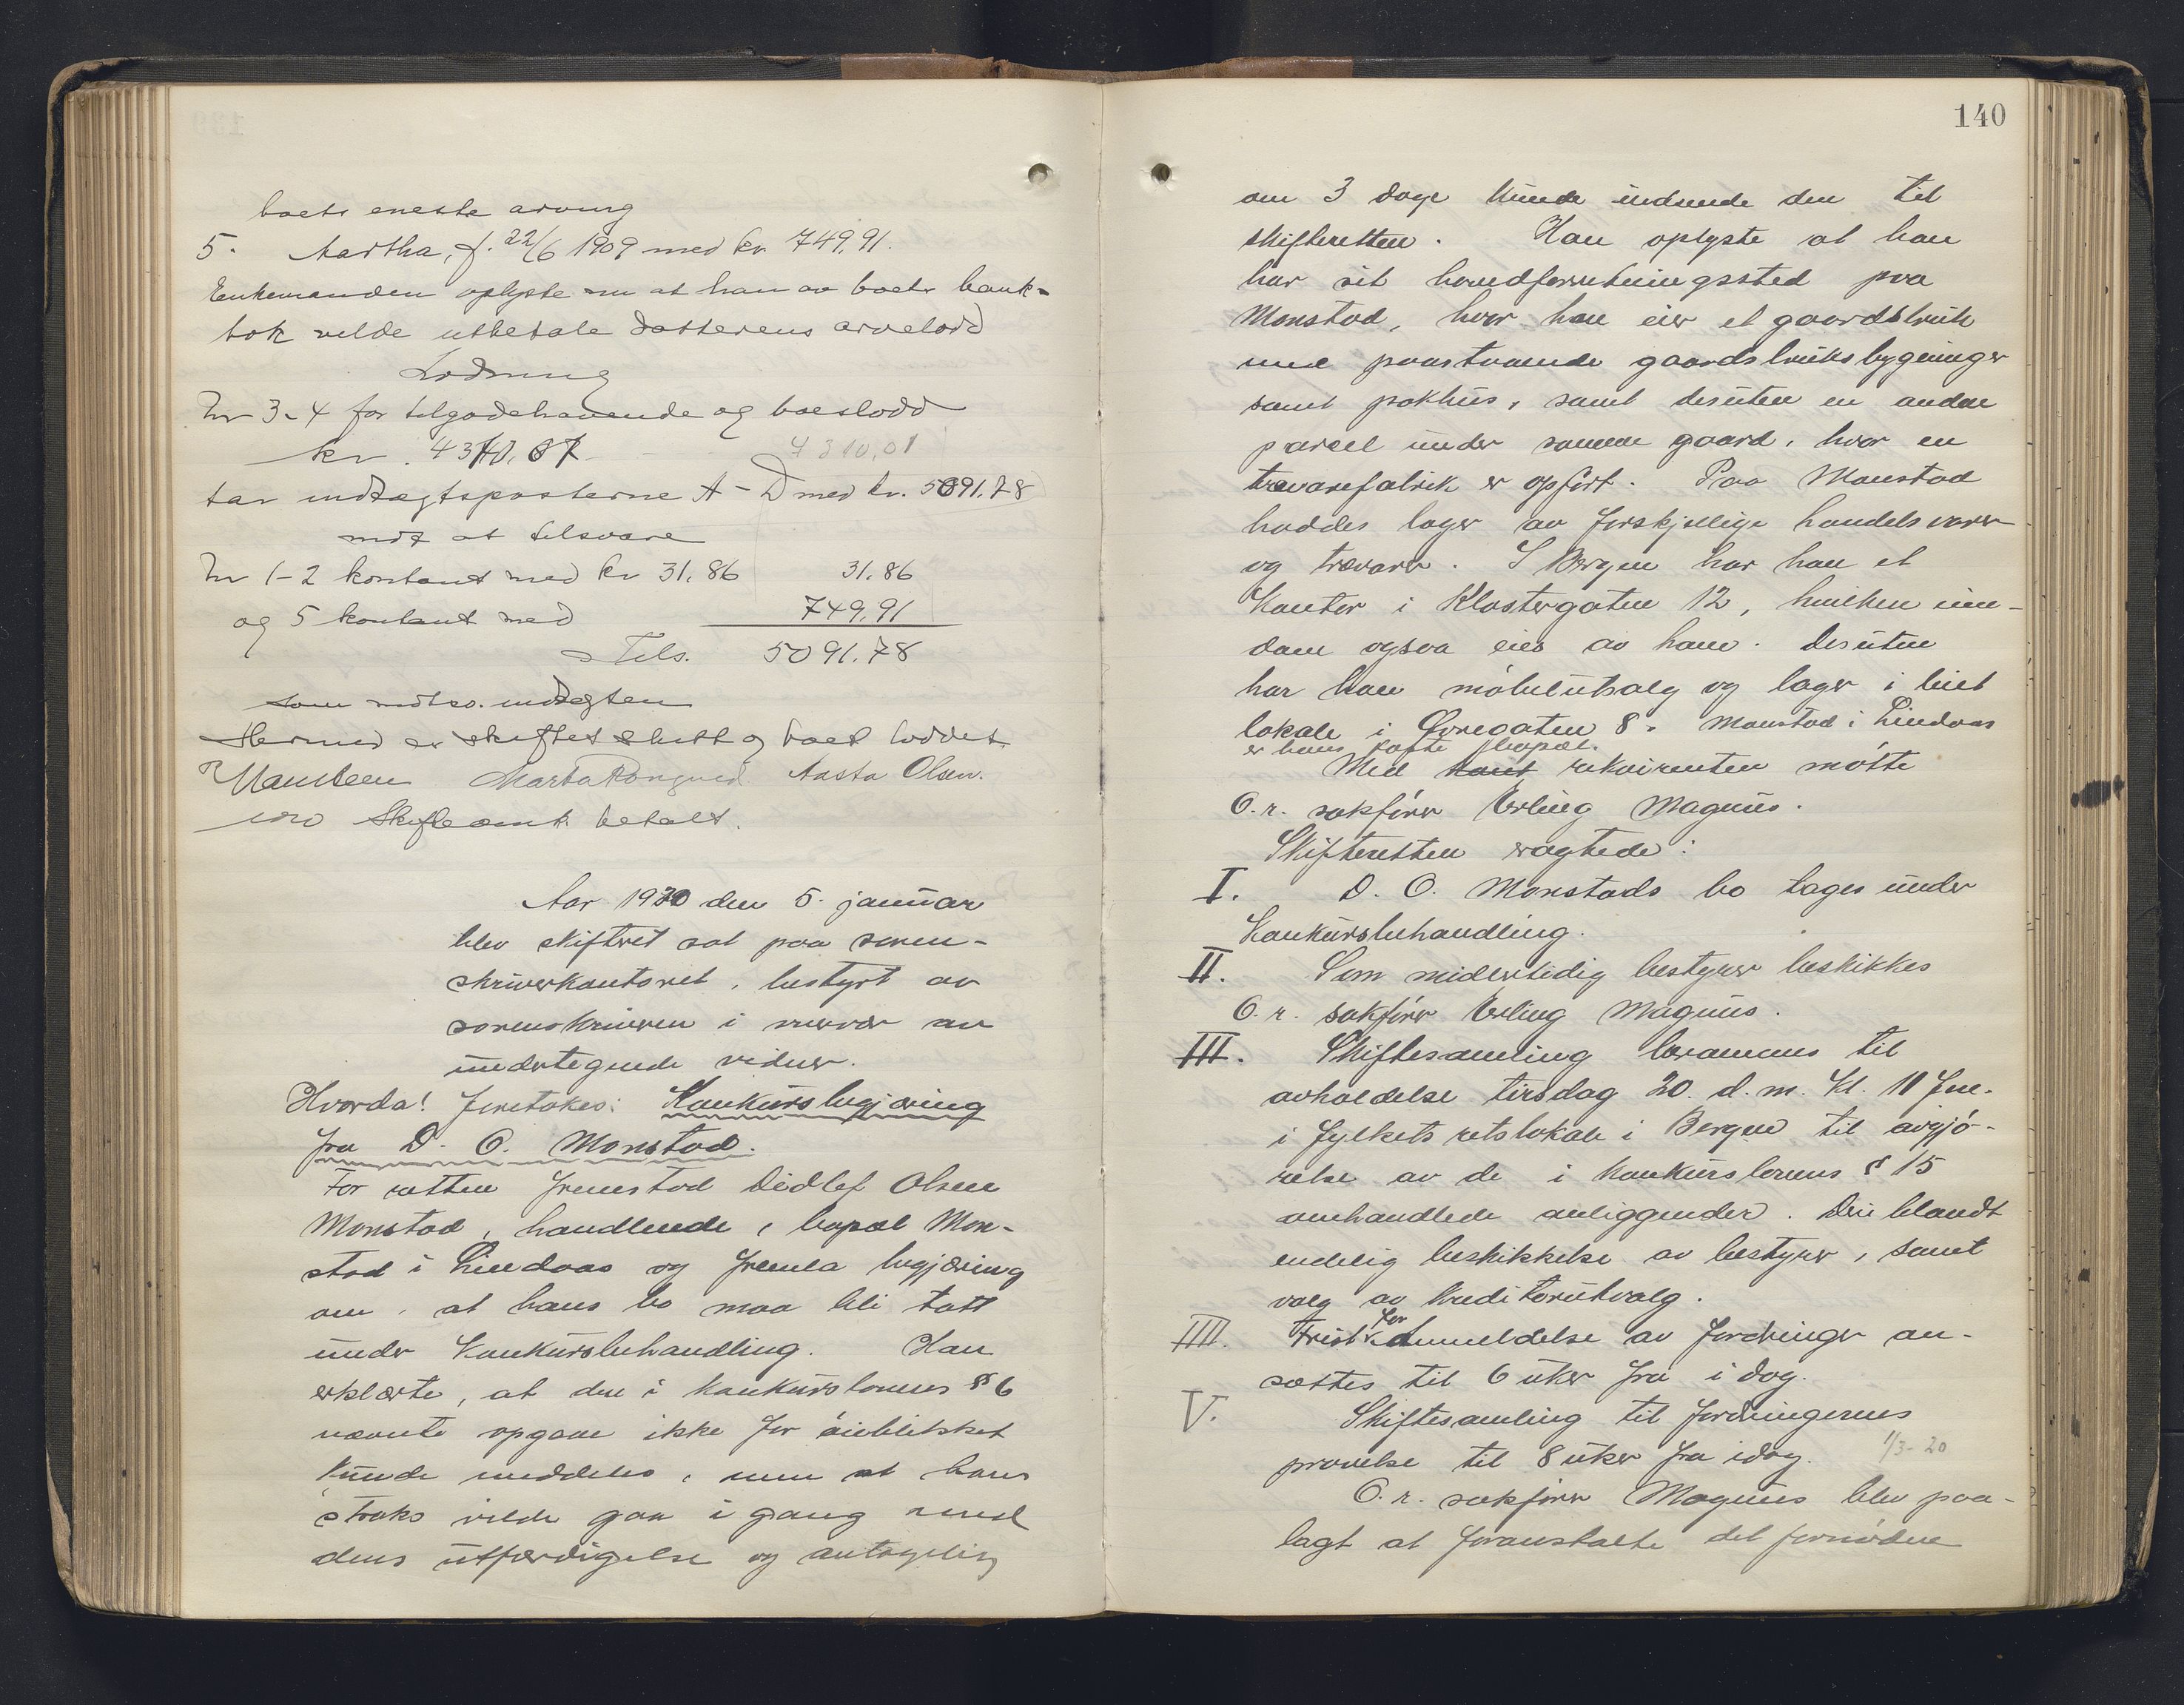 boets eneste arving
5. Aartha, f. 22/6 1909 med kr 749,91.
Enkemanden oplyste nu at han av boets bank-
bok vilde utbetale datterens arvelodd
Lodning
Nr 3-4 for tilgodehavende og boeslodd
kr. 4310,01 4310,01
tar indtægtsposterne A - D med kr. 5091.78
mot at tilsvare
Nr 1-2 kontant med kr 31,86 31.86
og 5 kontant med 749.91
Tils. 5091.78
som motsv. indtægten
Hermed er skiftet slutt og boet loddet.
Aasta Olsen.
Skifteomk. betalt.
Aar 1920 den 5. januar
blev skifteret sat paa soren-
skriverkontoret, bestyrt av
sorenskriveren i nærvær av
undertegnede vidner.
Hvorda! Foretokes: Konkursbegjæring
fra D. O. Monstad.
For retten fremstod Didlef Olsen
Monstad, handlende, bopæl Mon-
stad i Lindaas og fremla begjæring
om, at hans bo maa bli tatt
under Konkursbehandling. Han
erklærte, at den i konkurslovens § 6
nævnte opgave ikke for öieblikket
kunde meddeles, men at han
straks vilde gaa i gang med
dens utfærdigelse og antagelig
140
om 3 dage kunde indsende den til
skifteretten. Han oplyste at han
har sit hovedforretningssted paa
Monstad, hvor han eier et gaardsbruk
med paastaaende gaardsbruksbygninger
samt pakhus, samt desuten en anden
parcel under samme gaard, hvor en
trævarefabrik er opfört. Paa Monstad
haddes lager av forskjellige handelsvarer
og trævarer. I Bergen har han et
Kontor i Klostergaten 12, hvilken eien-
dom ogsaa eies av ham. Desuten
har han möbelutsalg og lager i leiet
lokale i Øvregaten 8. Monstad i Lindaas
er hans faste bopæl.
Med ham rekvirenten mötte
O.r. sakförer Erling Magnus.
Skifteretten eragtede:
I. D. O. Monstads bo tages under
Konkursbehandling.
II. Som midlertidig bestyrer beskikkes
O. r. sakförer Erling Magnus.
III. Skiftesamling berammes til
avholdelse tirsdag 20. d.m. Kl. 11 Fm.
i fylkets retslokale i Bergen til avgjö-
relse av de i konkurslovens § 15
omhandlede anliggender. Deriblandt
endelig beskikkelse av bestyrer, samt
valg av kreditorutvalg.
IIII. Frist for Anmeldelse av fordringer an-
sættes til 6 uker fra i dag.
V. Skiftesamling til fordringernes
prövelse til 8 uker fra idag. 1/3-20
O. r. sakförer Magnus blev paa-
lagt at foranstalte det fornödne